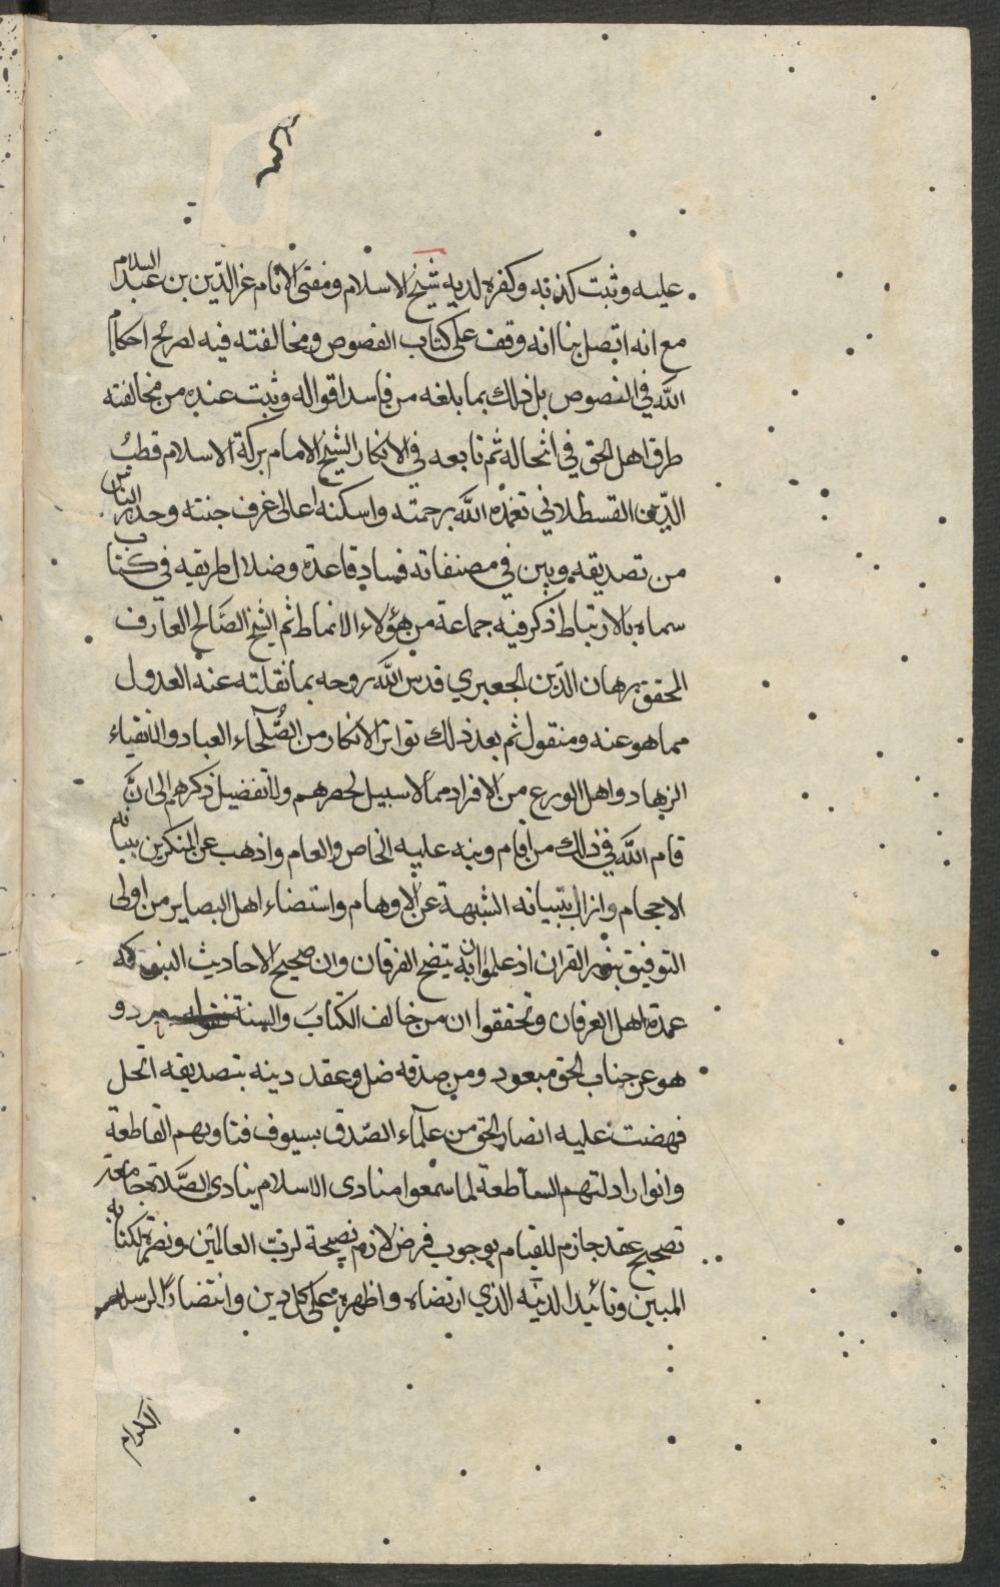 عليه وثبت كذبه وكفره لديه شيخ الاسلام ومفتى الانام عز الدين بن عبد السلام
مع انه اتصل بنا انه وقف على كتاب الفصوص ومخالفته فيه لصريح احكام
الله في النصوص بل ذلك بما بلغه من فاسد اقواله وثبت عنده من مخالفته
طرق اهل الحق في انتحاله ثم تابعه في الانكار الشيخ الامام بركة الاسلام قطب
الدين القسطلاني تغمده الله برحمته واسكنه اعالى غرف جنته وحذر الناس
من تصديقه وبين في مصنفاته فساد قاعدته وضلال طريقه في كتاب
سماه بالارتباط ذكر فيه جماعة من هؤلاء الانماط ثم الشيخ الصالح العارف
المحقق برهان الدين الجعبري قدس الله روحه بما نقلته عنه العدول
مما هو عنه ومنقول ثم بعد ذلك تواتر الانكار من الصلحاء العباد والاتقياء
الزهاد واهل الورع من الافراد مما لا سبيل لحصرهم ولا تفضيل ذكرهم الى ان
قام الله في ذلك من اقام ونبه عليه الخاص والعام واذهب عن المنكرين ببيانه
الاحجام وازال بتبيانه الشبهة عن الاوهام واستضاء اهل البصاير من اولى
التوفيق بنور القران اذ علموا انه به يتضح الفرقان وان صحيح الاحاديث النبوية
عمدة اهل العرفان وتحققوا ان من خالف الكتاب والسنة مردو
هو عن جناب الحق مبعود ومن صدقه ضل وعقد دينه بتصديقه انحل
فهضت عليه انصار الحق من علماء الصدق بسيوف فتاويهم القاطعة
وانوار ادلتهم الساطعة لما سمعوا منادى الاسلام ينادي الصلاة جامعة
تصحيح عقد جازم للقيام بوجوب فرض لازم نصيحة لرب العالمين ونصرة لكتابه
المبين وتائيدا لدينه الذي ارتضاه واظهره على كل دين وانتصارا لرسله
الكرام